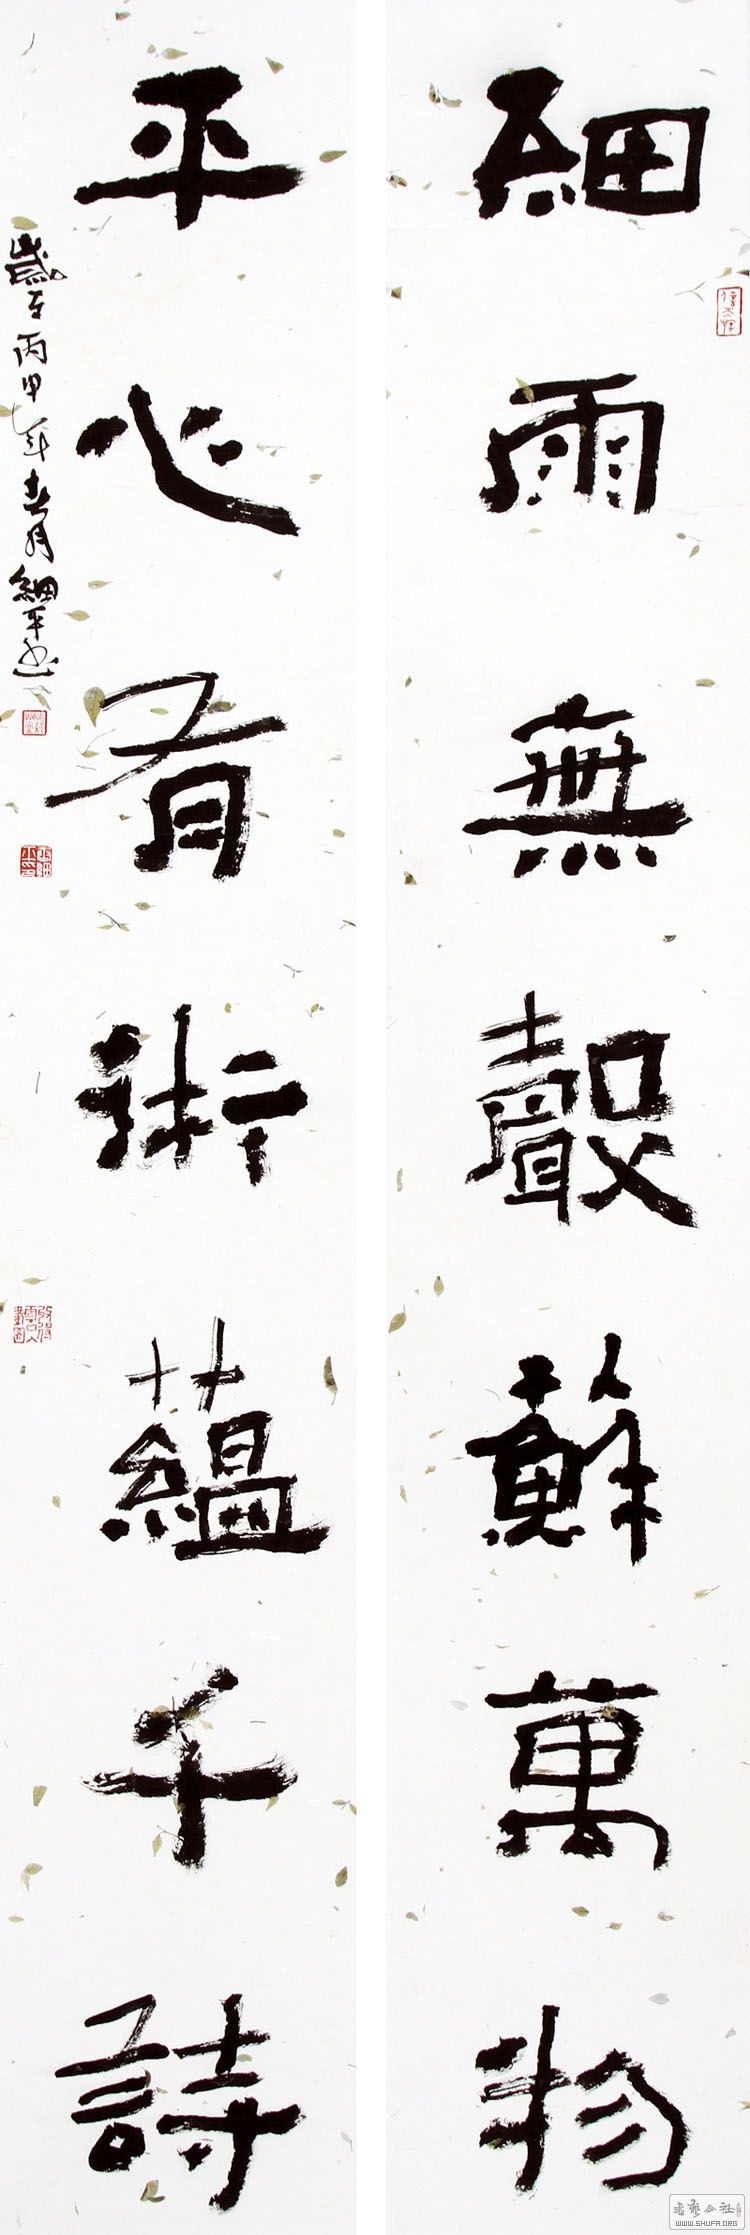 細雨無聲蘇萬物
平心有術蘊千詩
歲在丙申年春月細平書
書藝公社
WWW.SHUFA.ORG